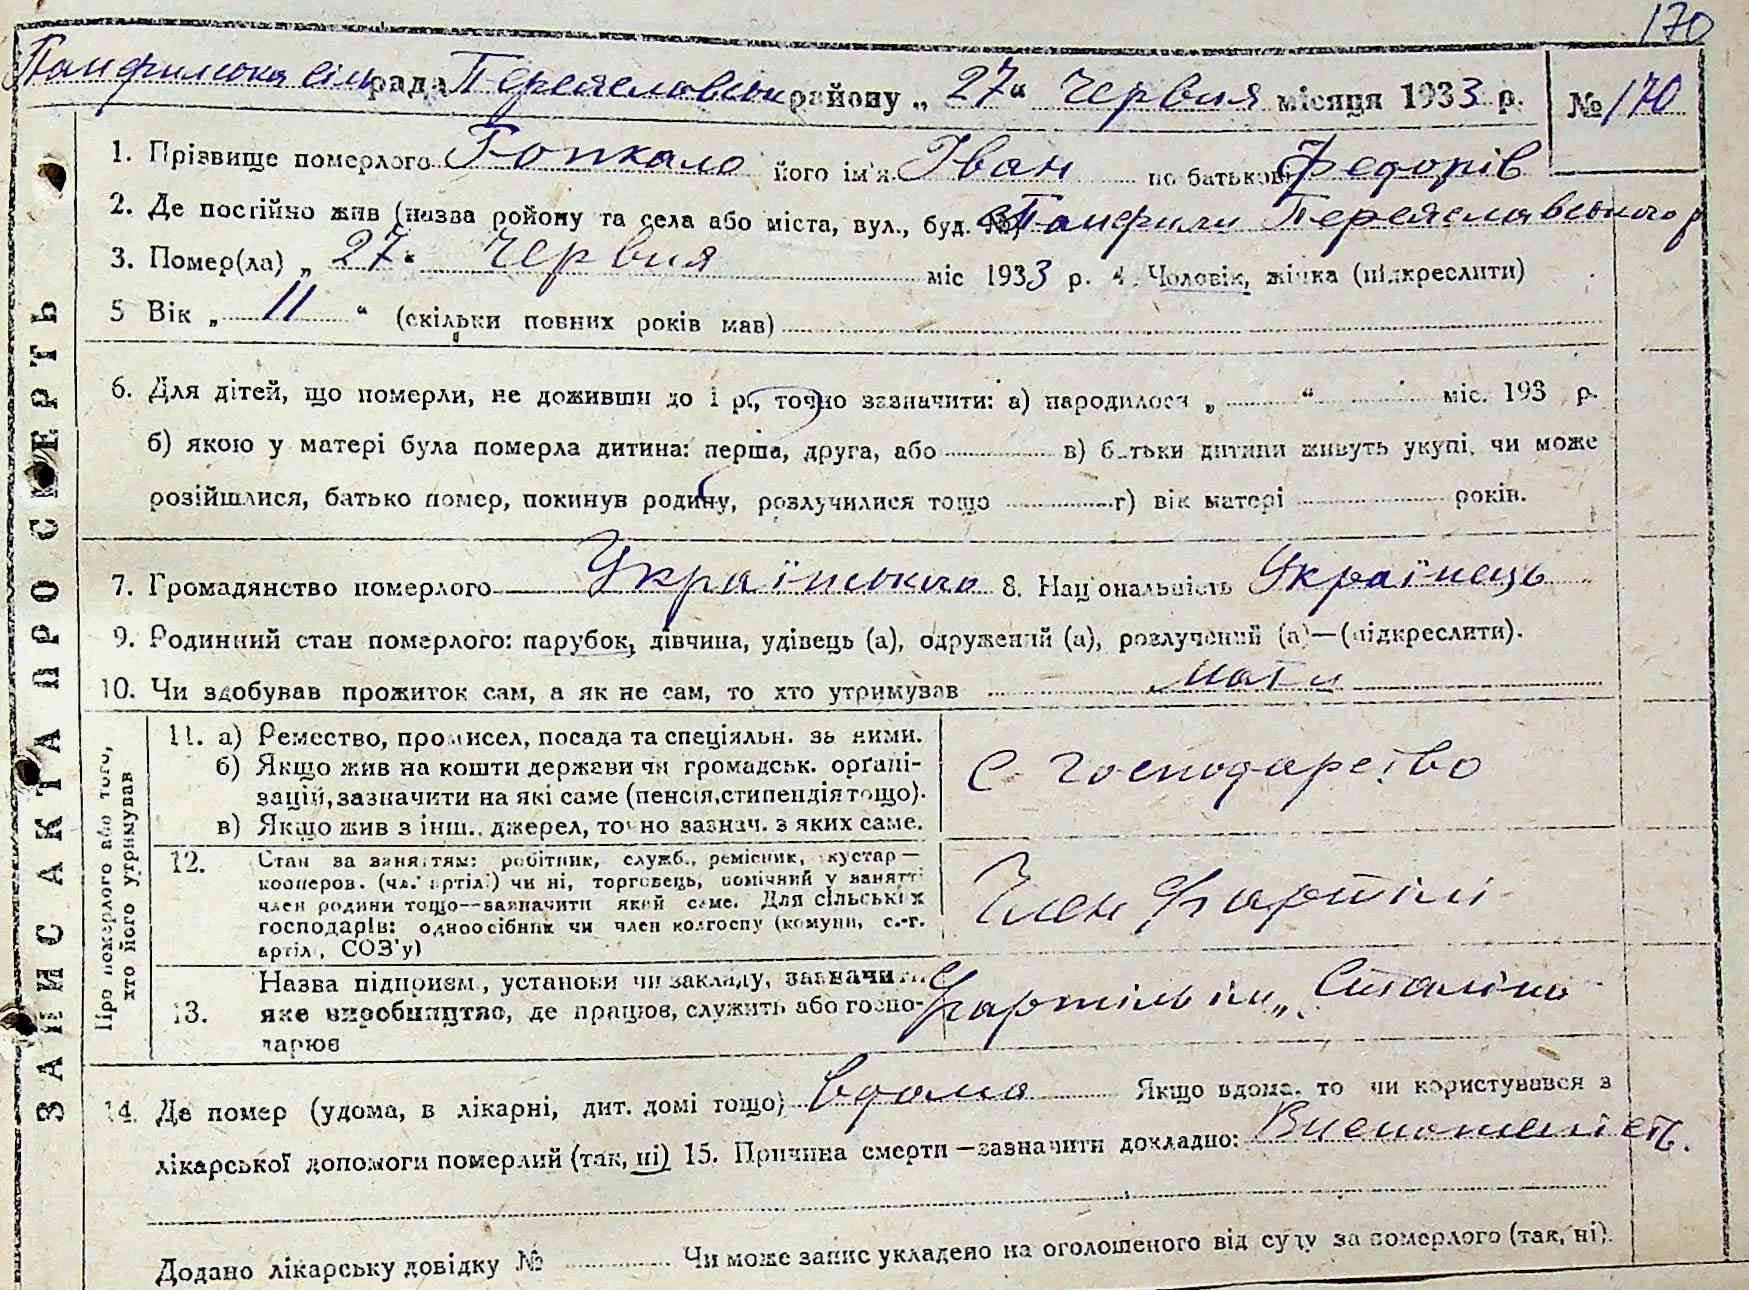 170
Панфилська сільрада Переяславськ району „27“ Червня місяця 1933 р. № 170
1. Прізвище померлого Гопкало його ім'я Іван по батькові Федорів
2. Де постійно жив (назва ройону та села або міста, вул., буд. №) Панфили Переяславського р
3. Помер(ла) „27“ Червня міс 1933 р. 4. Чоловік, жінка (підкреслити)
5 Вік „ 11 “ (скільки повних років мав)
6. Для дітей, що померли, не доживши до 1 р., точно зазначити: а) народилося „ “ міс. 193 р.
б) якою у матері була померла дитина: перша, друга, або в) батьки дитини живуть укупі, чи може
розійшлися, батько помер, покинув родину, розлучилися тощо г) вік матері років.
7. Громадянство померлого Українського 8. Національність Українець
9. Родинний стан померлого: парубок, дівчина, удівець (а), одружений (а), розлучений (а)—(підкреслити).
10. Чи здобував прожиток сам, а як не сам, то хто утримував мати
ЗАПИС АКТА ПРО СМЕРТЬ
Про померлого або того, хто його утримував
11. а) Ремество, промисел, посада та спеціяльн. за ними.
б) Якщо жив на кошти держави чи громадськ. органі-
зацій, зазначити на які саме (пенсія, стипендія тощо).
в) Якщо жив з інш. джерел, точно зазнач. з яких саме.
С Господарство
12. Стан за заняттям: робітник, служб., ремісник, кустар—
кооперов. (чл. артіл.) чи ні, торговець, помічний у занятті
член родини тощо—зазначити який саме. Для сільських
господарів: одноосібник чи член колгоспу (комуни, с.-г.
артілі, СОЗ'у)
Член артілі
13. Назва підприєм., установи чи закладу, зазначити
яке виробництво, де працює, служить або госпо-
дарює
артіль ім „Сталіна
14. Де помер (удома, в лікарні, дит. домі тощо) вдома Якщо вдома, то чи користувався з
лікарської допомоги померлий (так, ні) 15. Причина смерти—зазначити докладно: Виснаженість.
Додано лікарську довідку № Чи може запис укладено на оголошеного від суду за померлого (так, ні).